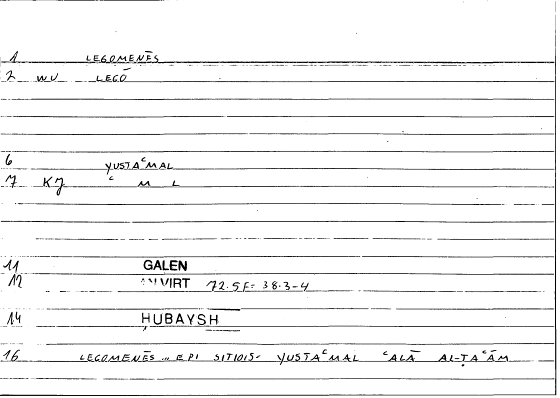 1 LEGOMENĒS
2 WV LEGŌ
6 YUSTAᶜMAL
7 KJ ᶜ M L
11 GALEN
12 AN VIRT 72.5F= 38.3-4
14 ḤUBAYSH
16 LEGOMENĒS ... EPI SITIOIS= YUSTAᶜMAL ᶜALĀ AL-ṬAᶜĀM